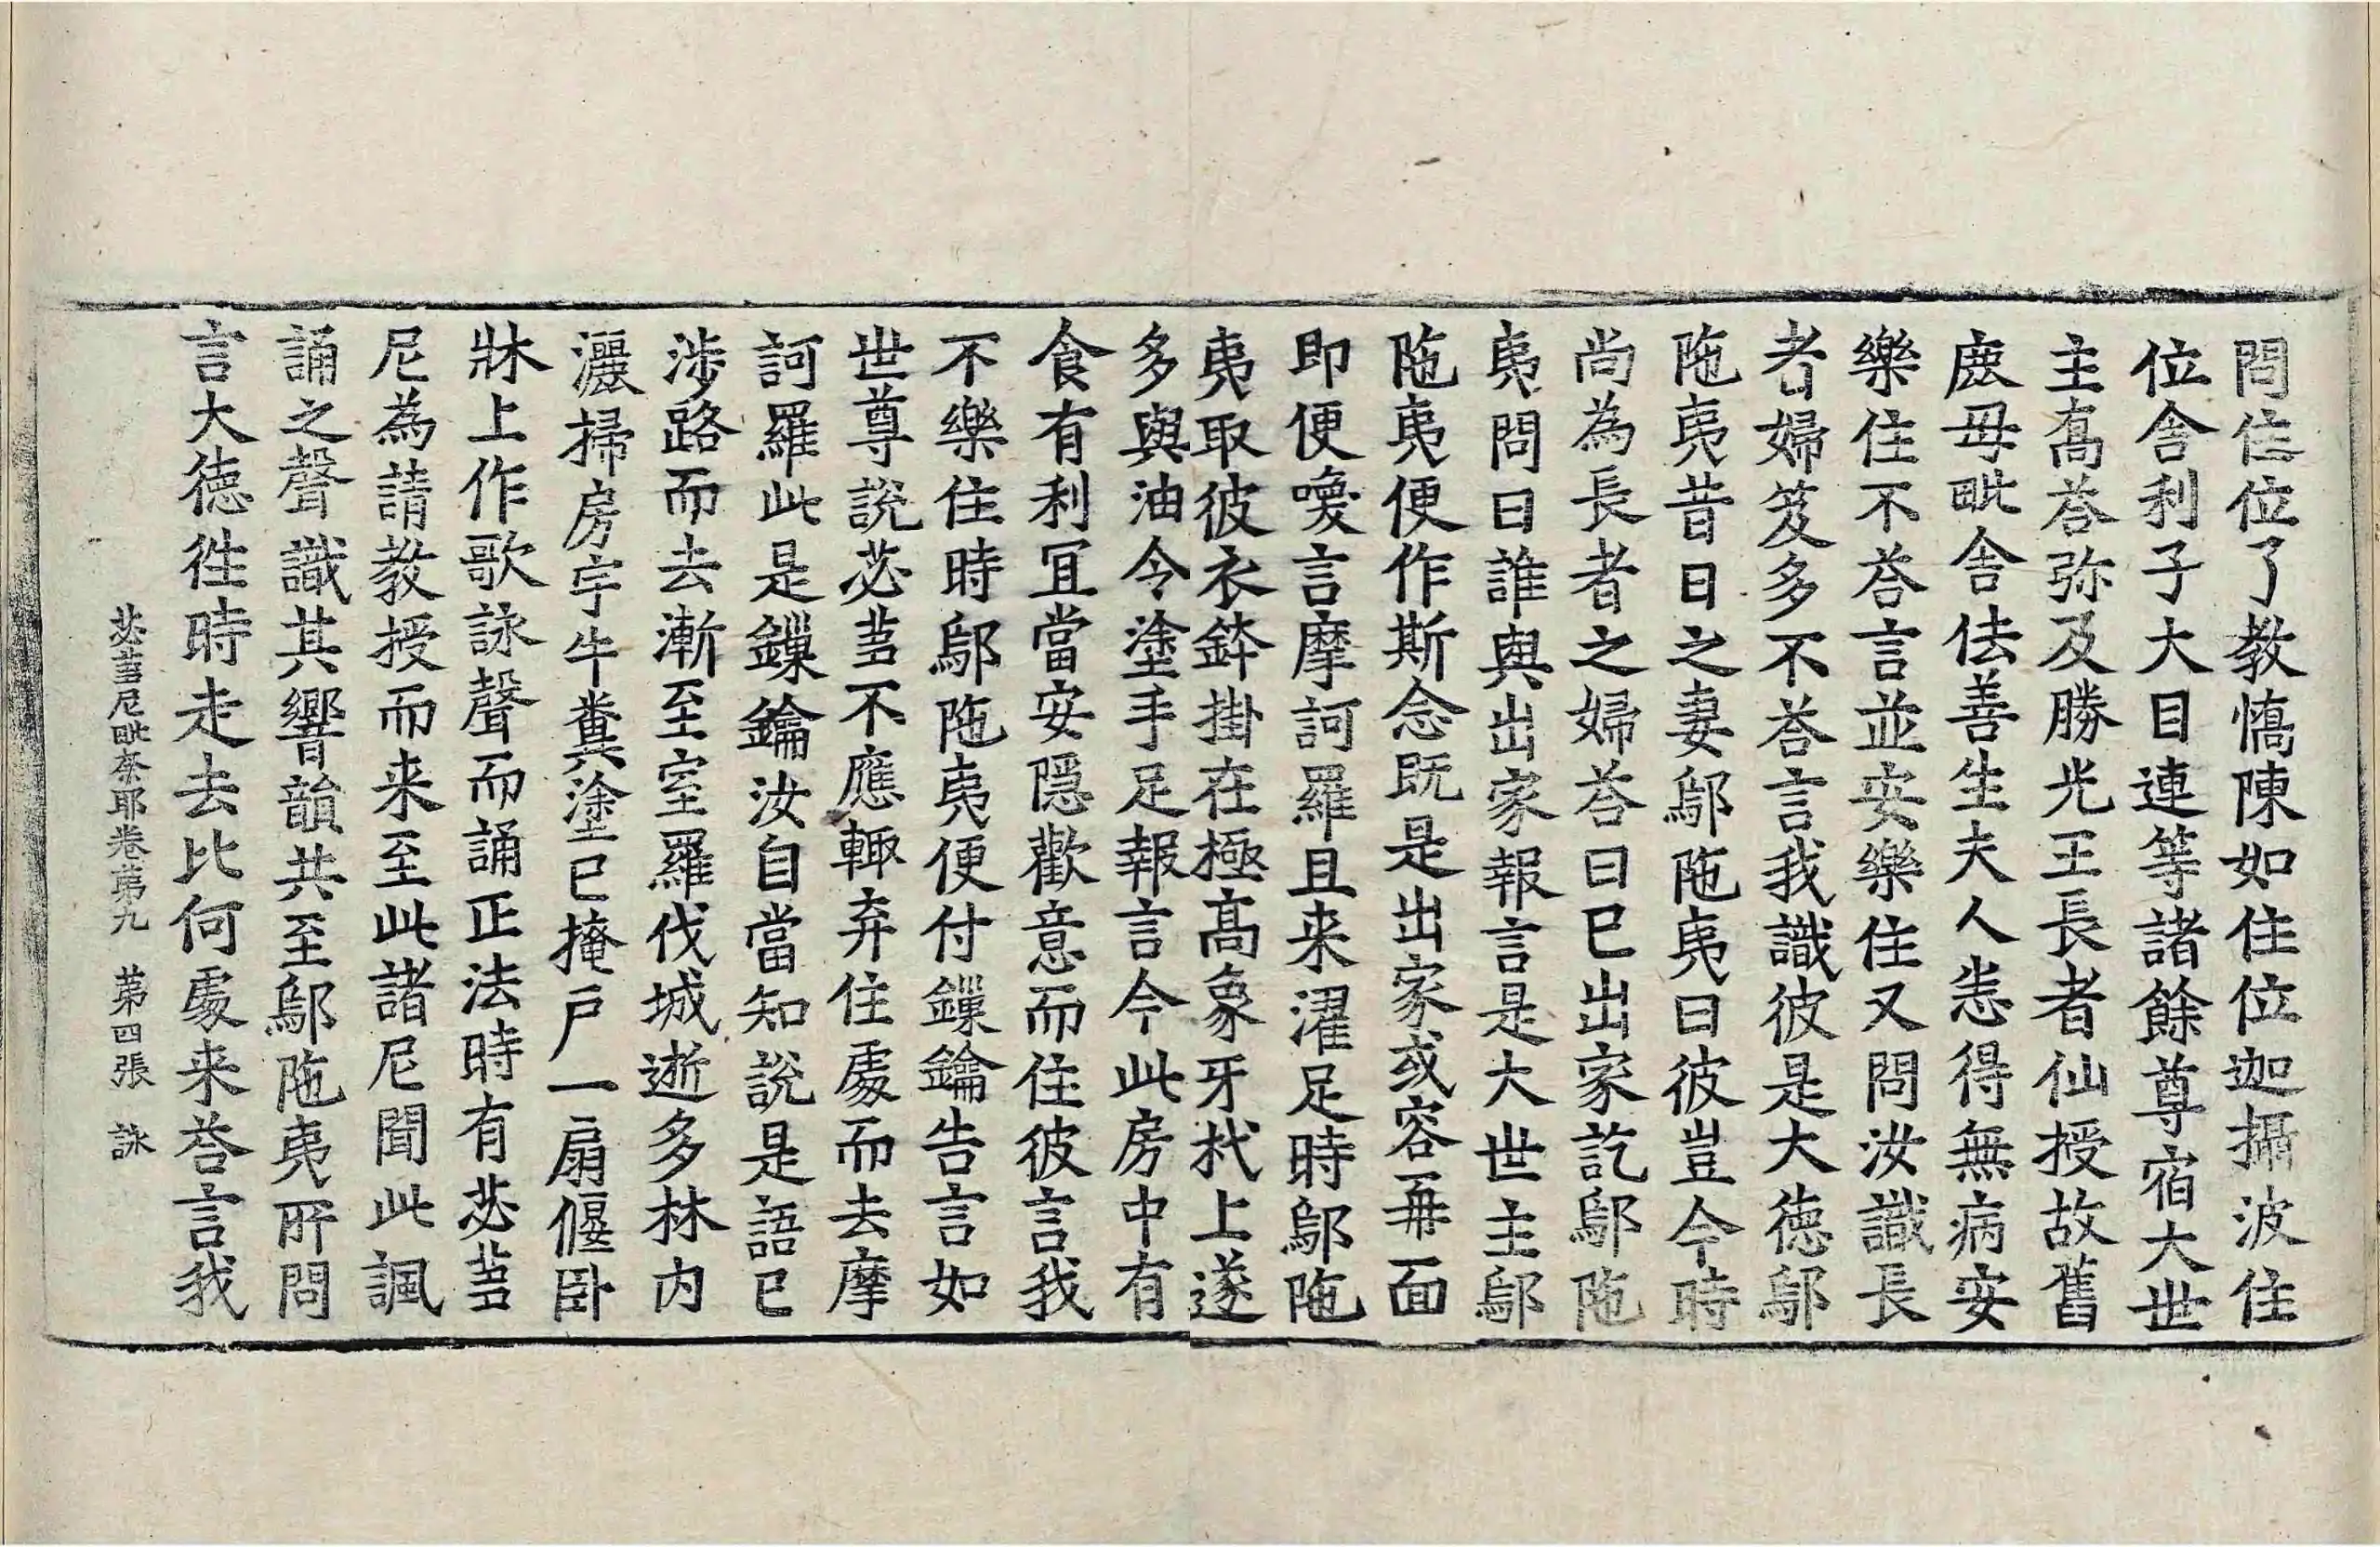 問住位了教憍陳如住位迦攝波住
位舍利子大目連等諸餘尊宿大世
主髙荅弥及勝光王長者仙授故舊
鹿母毗舍佉善生夫人恙得無病安
樂住不荅言並安樂住又問汝識長
者婦笈多不荅言我識彼是大徳鄔
陁夷昔日之妻鄔陁夷曰彼豈今時
尚為長者之婦荅曰巳出家訖鄔陁
夷問曰誰與出家報言是大世主鄔
陁夷便作斯念既是出家或容再面
即便喚言摩訶羅且来濯足時鄔陁
夷取彼衣鉢掛在極髙象牙杙上遂
多與油令塗手足報言今此房中有
食有利冝當安隱歡意而住彼言我
不樂住時鄔陁夷便付鏁鑰告言如
世尊說苾芻不應輙弃住處而去摩
訶羅此是鏁鑰汝自當知說是語巳
涉路而去漸至室羅伐城逝多林内
灑掃房宇牛糞塗巳掩戶一扇偃卧
牀上作歌詠聲而誦正法時有苾芻
尼為請教授而来至此諸尼聞此諷
誦之聲識其響韻共至鄔陁夷所問
言大徳徃時走去比何處来荅言我
苾芻尼毗奈耶卷第九　第四張　詠